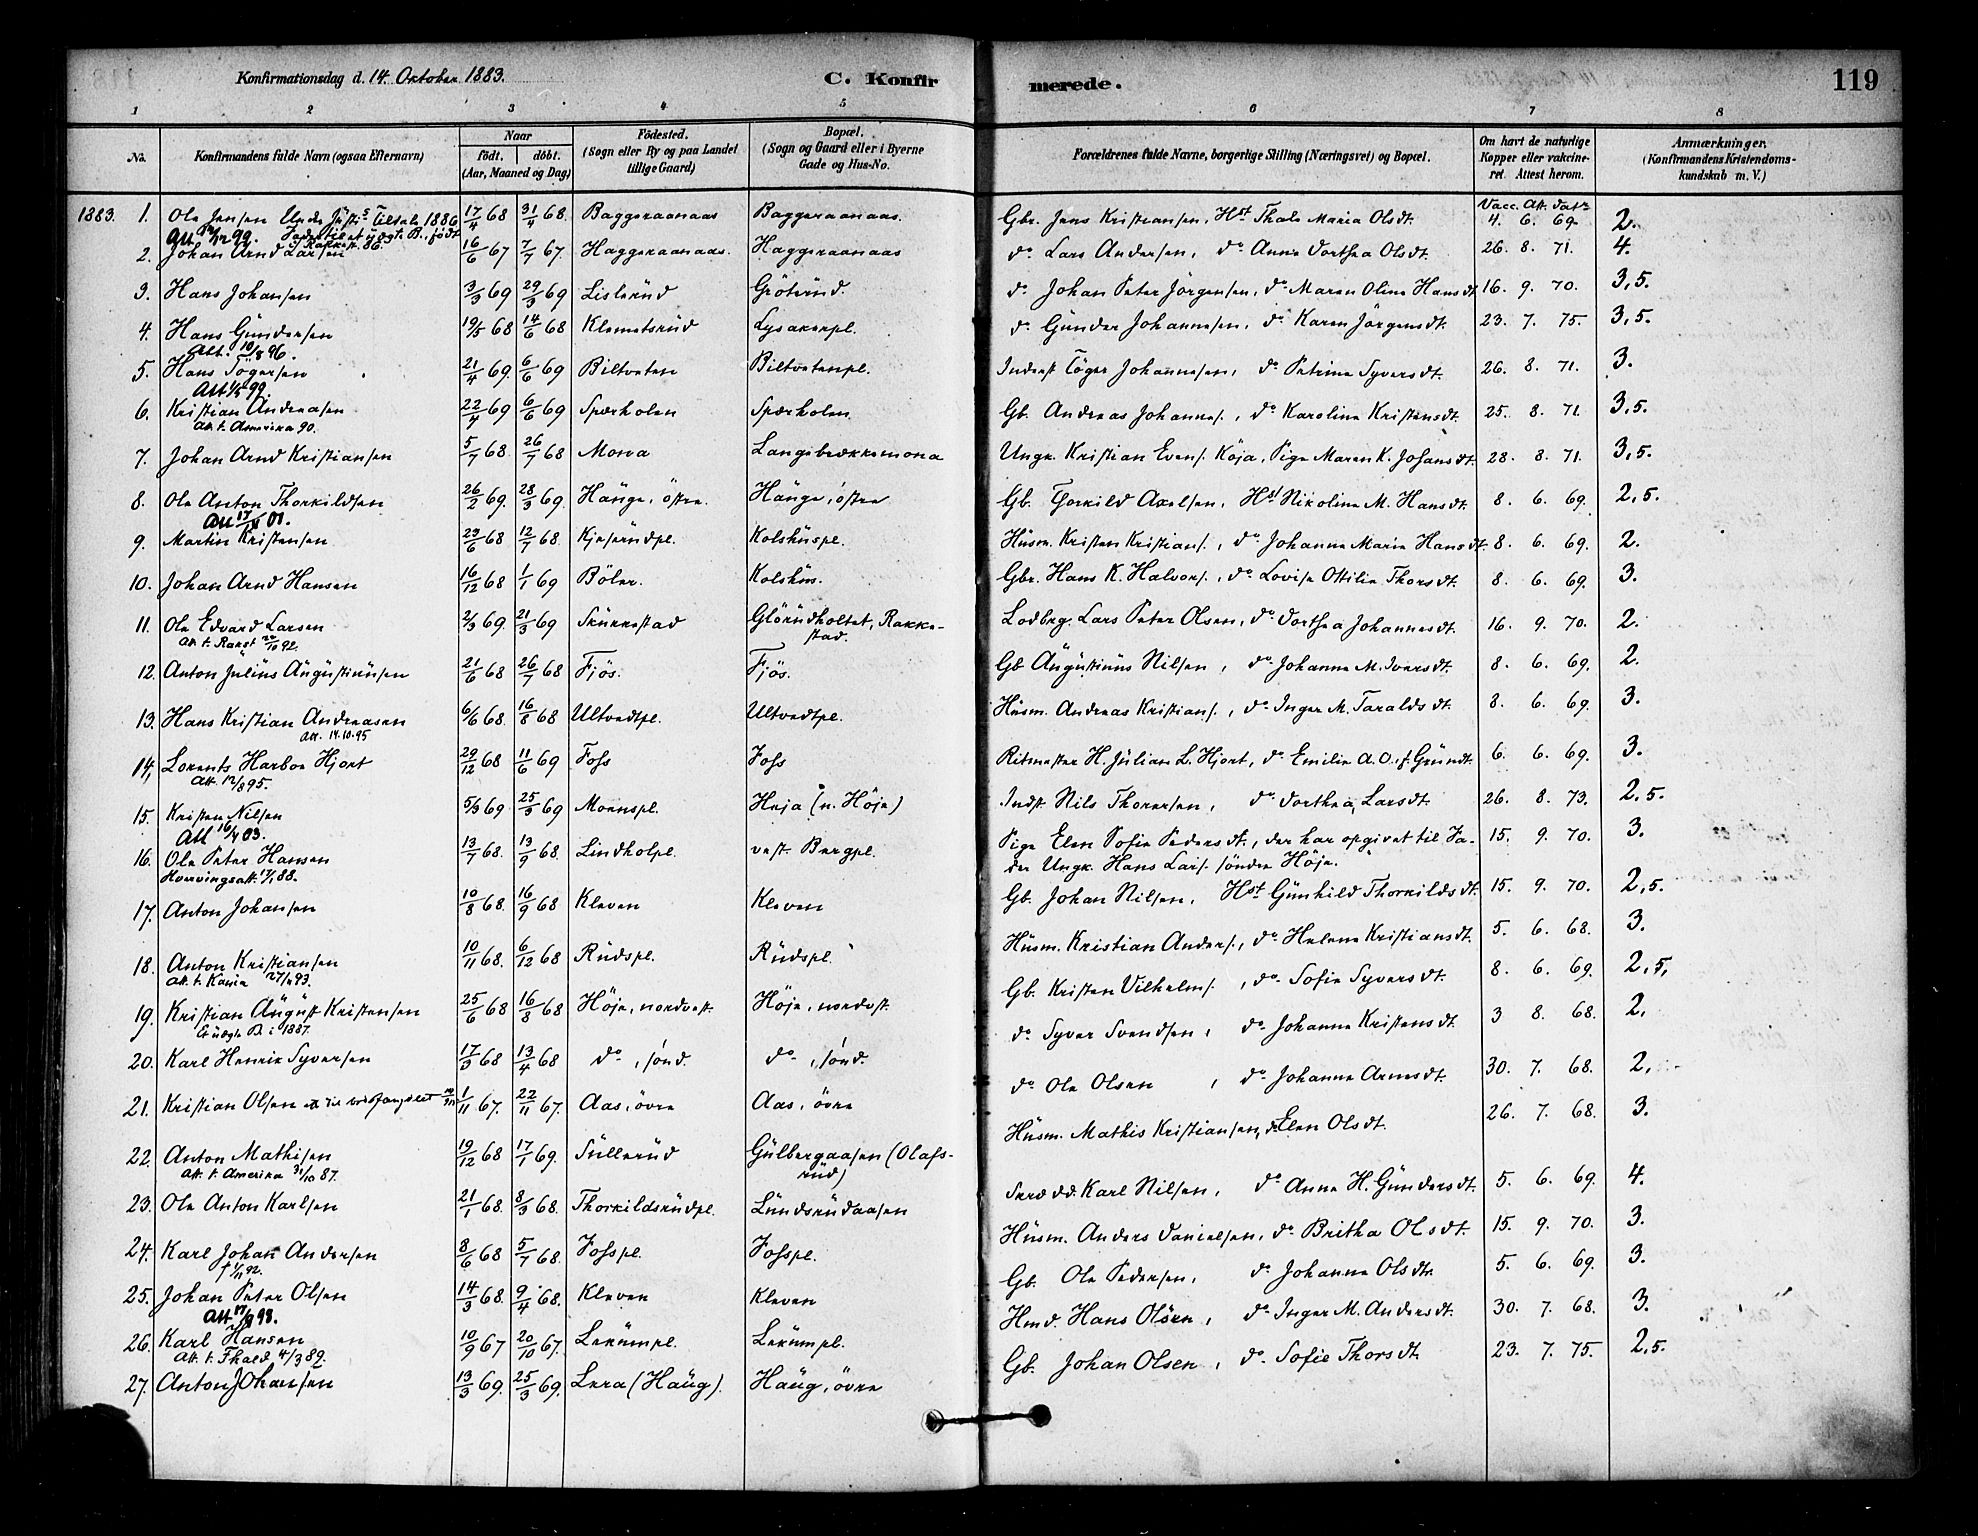 Konfirmationsdag d. 14. Oktober 1883.
C. Konfir
merede.
119
1 2 3 4 5 6 7 8
No.
Konfirmandens fulde Navn (ogsaa Efternavn)
Naar
födt. döbt.
(Aar, Maaned og Dag)
Födested.
(Sogn eller By og paa Landet
tillige Gaard)
Bopæl.
(Sogn og Gaard eller i Byerne
Gade og Hus-No.
Forældrenes fulde Navne, borgerlige Stilling (Næringsvei) og Bopæl.
Om havt de naturlige
Kopper eller vakcine-
ret. Attest herom.
Anmærkninger.
(Konfirmandens Kristendoms-
kundskab m. V.)
1883. 1. Ole Jensen 17/4 68 31/4 68. Baggeraanaas Baggeraanaas. Gbr. Jens Kristiansen, Hst Thale Maria Olsdt. 4. 6. 69. 2.
2. Johan Arnd Larsen 16/6 67 7/7 67. Haggeraanaas. Haggeraanaas do Lars Andersen, do Anne Dorthea Olsdt. 26. 8. 71. 4.
3. Hans Johansen 3/3 69 29/3 69 Lislerud Grötvud. do Johan Peter Jörgensen, do Maren Oline Hansdt 16. 9. 70. 3,5.
4. Hans Gundersen 19/5 68 14/6 68 Klemetsrud Lysakerpl. do Gunder Johannesen, do Karen Jörgensdt. 23. 7. 75. 3,5.
Att. 10/8 96.
5. Hans Tögersen 21/4 69. 6/6 69 Biltveten Biltvetenpl. Inderst Töger Johannesen, do Petrine Syversdt. 26. 8. 71. 3.
Att 1/5 99.
6. Kristian Andreasen 22/4 69 6/6 69 Spærholen Spærholen. Gb. Andreas Johannes., do Karoline Kristensdt. 25. 8. 71. 3,5.
Att. t. Amerika 90.
7. Johan Arnd Kristiansen 5/7 68. 26/7 68 Mona Langebrækkemona Ungk. Kristian Evens. Köja, Pige Maren K. Johansdt. 28. 8. 71. 3,5.
8. Ole Anton Thorkildsen 26/2 69. 28/3 69. Hauge, östre. Hauge, östre Gb. Thorkild Axelsen, Hst Nikoline M. Hansdt. 8. 6. 69. 2,5.
9. Martin Kristensen 23/6 68 12/7 68. Kjoserudpl. Kolshuspl. Husm. Kristen Kristians., do Johanne Marie Hansdt. 8. 6. 69. 2.
10. Johan Arnd Hansen 16/12 68 1/1 69 Böler. Kolshus. Gbr. Hans K. Halvors., do Lovise Ottilie Thorsdt. 8. 6. 69. 3.
11. Ole Edvard Larsen 2/3 69. 21/3 69 Skukkestad Glörudholtet, Rakke-
stad. Lodbrg. Lars Peter Olsen, do Dorthea Johannesdt. 16. 9. 70. 2.
Att. t. Rakst 20/10 92.
12. Anton Julius Augustinusen 21/6 68 26/7 68 Fjös. Fjös. Gb Augustinus Nilsen, do Johanne M. Iversdt. 8. 6. 69. 2.
13. Hans Kristian Andreasen 6/6 68. 16/8 68 Ultvedtpl. Ultvedtpl. Husm. Andreas Kristians., do Inger M. Taraldsdt. 8. 6. 69. 3.
Att. 14.10.95
14. Lorents Harboe Hjort 29/12 68 11/6 69 Foss Foss Ritmester H. Julian L. Hjort, do Emilie A. O. f. Grundt. 6. 6. 69. 3.
Att. 12/8 95.
15. Kristen Nilsen 5/3 69 25/3 69 Moenspl. Heja (n. Höje) Indst. Nils Thoresen, do Dorthea Larsdt. 26. 8. 73. 2,5.
Att 16/4 03.
16. Ole Peter Hansen 13/7 68. 13/9 68. Lindholpl. vest. Bergpl. Pige Elen Sofie Pedersdt., der har opgivet til Fa-
der Ungk. Hans Lars. söndre Höje. 15. 9. 70. 3.
Hvervingsatt. 17/1 88.
17. Anton Johansen 10/8 68. 16/9 68 Kleven Kleven Gb. Johan Nilsen, Hst Gunhild Thorkildsdt. 15. 9. 70. 2,5.
18. Anton Kristiansen 10/11 68. 6/12 68 Rudspl. Rudspl. Husm. Kristian Anders., do Helene Kristiansdt. 5. 6. 68. 3.
19. Kristian August Kristensen 25/6 68 16/8 68 Höje, nordvest. Höje, nordvest. Gb. Kristen Vilhelms., do Sofie Syversdt. 8. 6. 69. 2,5,
Et ægte B. i 1887.
20. Karl Henrik Syversen 17/3 68 13/4 68 do, sönd. do, sönd. do Syver Svendsen, do Johanne Kristensdt. 3 8. 68. 2.
21. Kristian Olsen 1/11 67. 22/11 67. Aas, övre Aas, övre do Ole Olsen, do Johanne Arnesdt. 30. 7. 68. 2,
22. Anton Mathisen 19/12 68 17/1 69. Sullerud Gulbergaasen (Olafs-
rud) Husm. Mathis Kristiansen, do Elen Olsdt. 26. 7. 68. 3.
Att. t. Amerika 31/10 87.
23. Ole Anton Karlsen 21/1 68. 8/3 68. Thorkildsrudpl. Lundsrudaasen Karl Nilsen, do Anne H. Gundersdt. 5. 6. 69. 4.
24. Karl Johan Andersen 8/6 68 5/7 68. Fosspl. Fosspl. Husm. Anders Danielsen, do Britha Olsdt. 15. 9. 70. 3.
† 1/11 92.
25. Johan Peter Olsen 14/3 68. 9/4 68. Kleven Kleven Gb. Ole Pedersen, do Johanne Olsdtr. 5. 6. 69. 3.
26. Karl Hansen 10/9 67 20/10 67. Lekumpl. Lekumpl. Hmd. Hans Olsen, do Inger M. Andersdt. 30. 7. 68. 3.
27. Anton Johansen 13/3 69. 25/3 69. Lera (Haug). Haug, övre Gb. Johan Olsen, do Sofie Thorsdt. 23. 7. 75. 2,5.